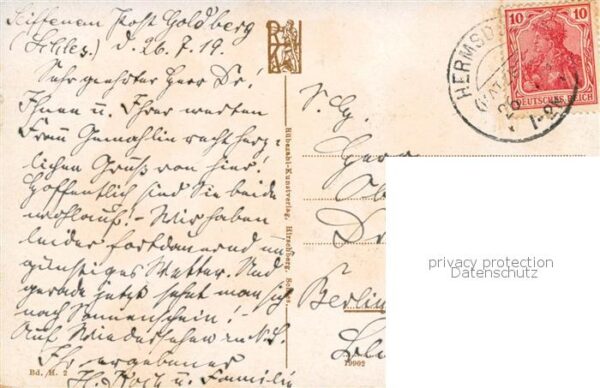 Post Goldberg
(Schles.) d. 26.7.19.
Sehr geehrter Herr Dr!
Ihnen u. Ihrer werten
Frau Gemahlin recht herz-
lichen Gruß von hier!
Hoffentlich sind Sie beide
wohlauf! - Wir haben
leider fortdauernd un-
günstiges Wetter. Und
gerade jetzt sehnt man sich
nach Sonnenschein! -
Auf Wiedersehen
Ihr ergebener
H. Koch u. Familie
Bd. H. 2
Rübezahl-Kunstverlag, Hirschberg,
HERMSD
10 10
DEUTSCHES REICH
Herr
Berlin
19902
privacy protection
Datenschutz